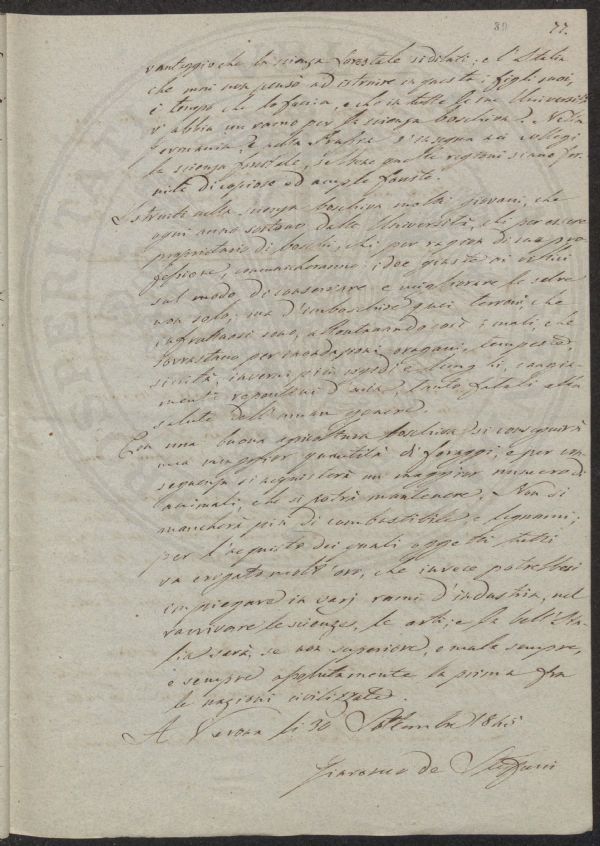 80 77.
vantaggio che la scienza forestale si dilati; e l'Italia
che mai non pensò ad istruire in questa i figli suoi,
è tempo che lo faccia, e che in tutte le sue Università
v'abbia un ramo per la scienza boschiva. Nella
Germania, e nella Prussia s'insegna nei collegi
la scienza forestale, sebbene quelle regioni siano for-
nite di copiose ed ample foreste.
Istruiti nella scienza boschiva molti giovani, che
ogni anno sortono dalle Università, chi per essere
proprietario di boschi, chi per ragion di sua pro-
fessione, comunicheranno idee giuste ai villici
sul modo di conservare e migliorare le selve
non solo, ma d'imboschire quei terreni, che
infruttuosi sono, allontanando così i mali, che
sovrastano per inondazioni, oragani, tempeste,
siccità, inverni più rigidi e lunghi, cangia-
menti repentini d'aria, tanto fatali alla
salute dell'uman genere.
Con una buona agricoltura boschiva si conseguirà
una maggior quantità di foraggi, e per con-
seguenza si acquisterà un maggior numero di
animali, che si potrà mantenere. Non si
mancherà più di combustibile e legnami;
per l'acquisto dei quali oggetti tutti
va erogato molt'oro, che invece potrebbesi
impiegare in varj rami d'industria, nel
ravvivare le scienze, le arti; e la bell'Ita-
lia sarà, se non superiore, eguale sempre,
e sempre assolutamente la prima fra
le nazioni civilizzate.
A Verona li 30 Settembre 1845
de